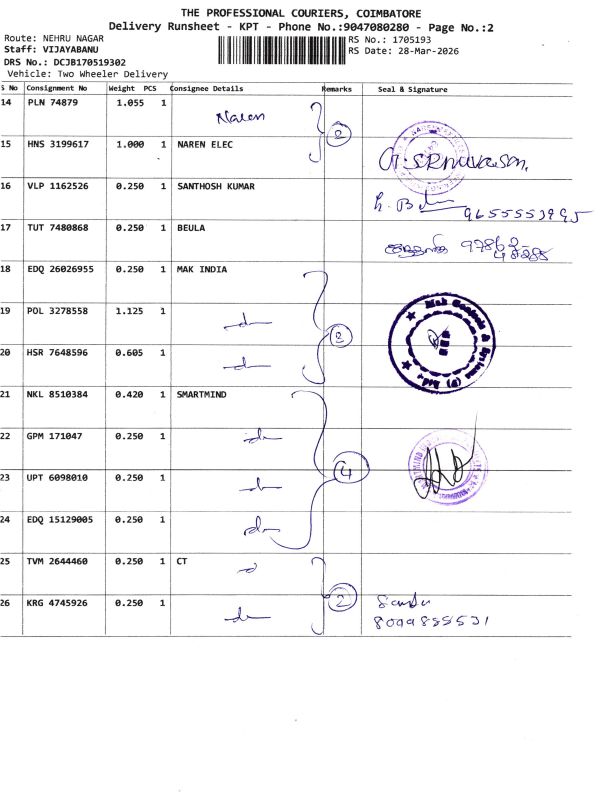 THE PROFESSIONAL COURIERS, COIMBATORE
Delivery Runsheet - KPT - Phone No.:9047080280 - Page No.:2
Route: NEHRU NAGAR
RS No.: 1705193
Staff: VIJAYABANU
RS Date: 28-Mar-2026
DRS No.: DCJB170519302
Vehicle: Two Wheeler Delivery
S No Consignment No Weight PCS Consignee Details Remarks Seal & Signature
14 PLN 74879 1.055 1 Naren
15 HNS 3199617 1.000 1 NAREN ELEC
G. SRnivasan.
16 VLP 1162526 0.250 1 SANTHOSH KUMAR
9655553995
17 TUT 7480868 0.250 1 BEULA
18 EDQ 26026955 0.250 1 MAK INDIA
19 POL 3278558 1.125 1
Mak Controls & Systems (P) Ltd.
20 HSR 7648596 0.605 1
21 NKL 8510384 0.420 1 SMARTMIND
22 GPM 171047 0.250 1
23 UPT 6098010 0.250 1 4
24 EDQ 15129005 0.250 1
25 TVM 2644460 0.250 1 CT
26 KRG 4745926 0.250 1 2
8099855531